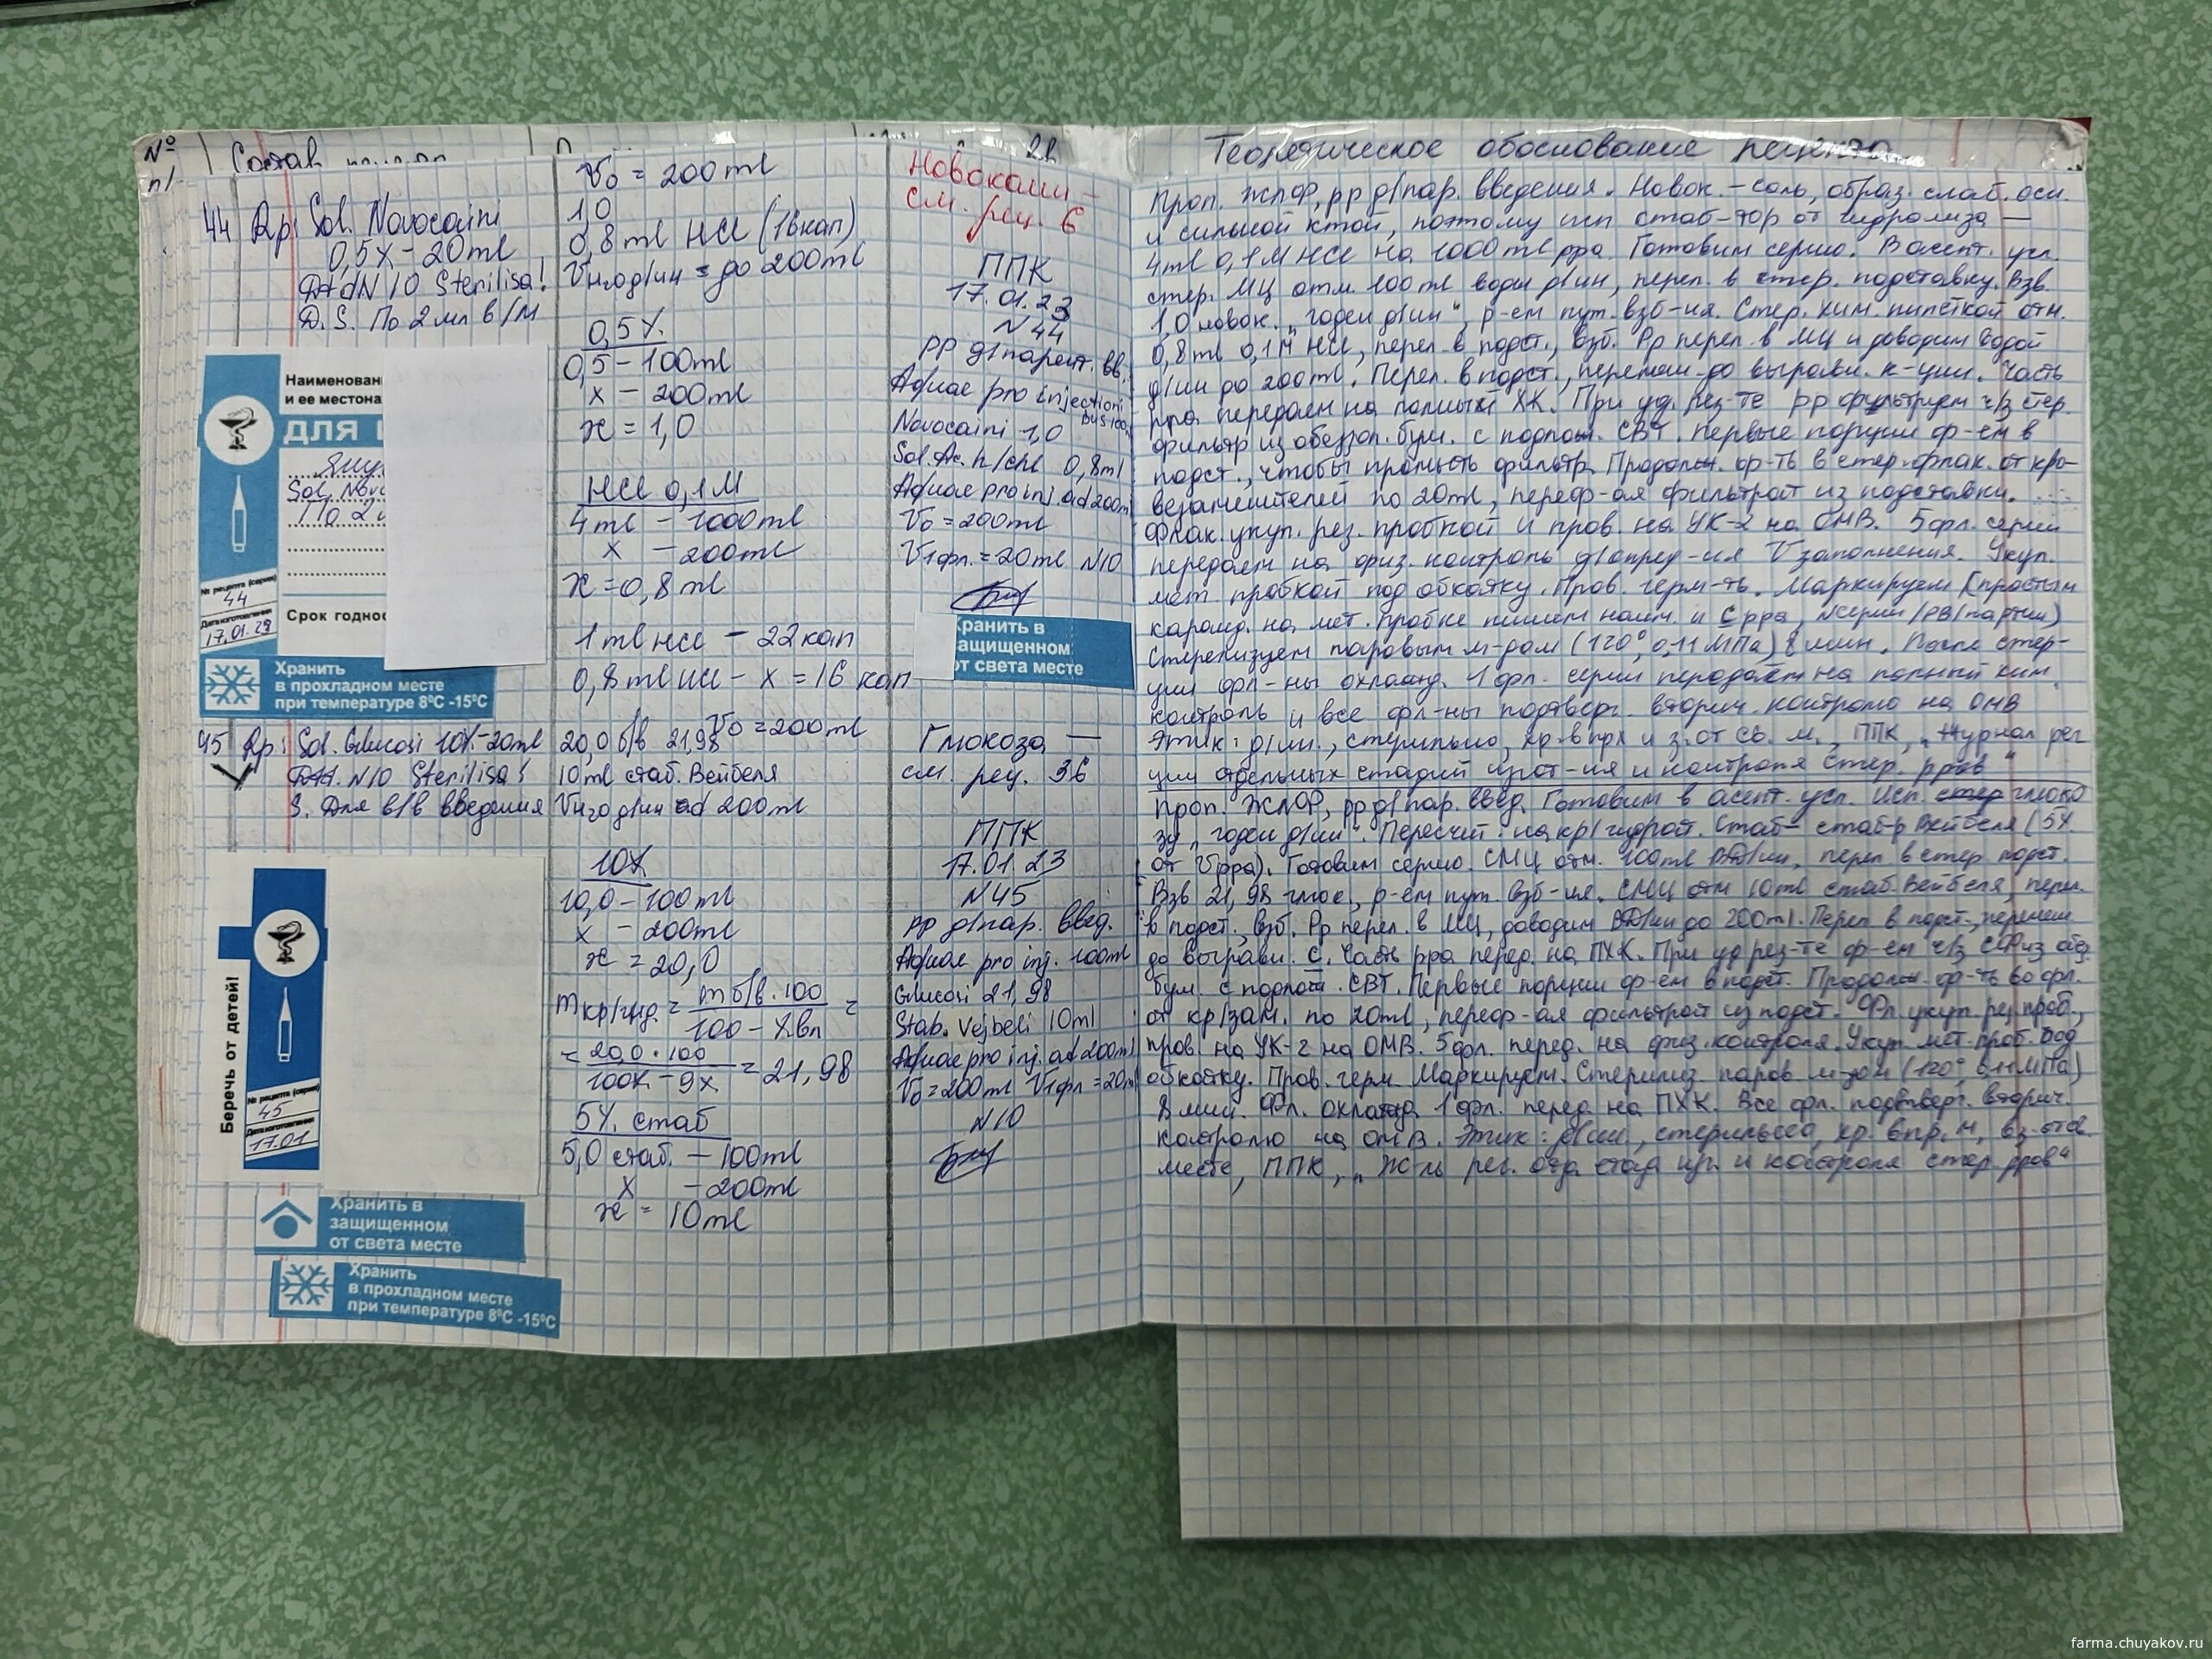 №
п/
Состав
44 Rp: Sol. Novocaini
0,5% – 20ml
D.t.d N 10 Sterilisa!
D.S. По 2 мл в/м
Наименован
и ее местона
ДЛЯ
Sol. Novo
По 2
№ рецепта (серия)
44
Дата изготовления
17.01.23
Срок годнос
Хранить
в прохладном месте
при температуре 8°C -15°C
45 Rp: Sol. Glucosi 10%-20ml
D.t.d. N10 Sterilisa!
S. Для в/в введения
Беречь от детей!
№ рецепта (серия)
45
Дата изготовления
17.01
Хранить в
защищенном
от света месте
Хранить
в прохладном месте
при температуре 8°C -15°C
V₀ = 200ml
1,0
0,8ml HCl (16кап)
Vн₂о д/ин = до 200ml
0,5%
0,5 – 100ml
x – 200ml
x = 1,0
HCl 0,1M
4ml – 1000ml
x – 200ml
x = 0,8ml
1ml HCl – 22кап
0,8ml HCl – x = 16 кап
V₀ = 200ml
20,0 б/в 21,98
10ml стаб. Вейбеля
Vн₂о д/ин ad 200ml
10%
10,0 – 100ml
x – 200ml
x = 20,0
mкр/гид. = mб/в·100 / 100 – %вл =
= 20,0·100 / 100% – 9% = 21,98
5% стаб
5,0 стаб. – 100ml
x – 200ml
x = 10ml
Новокаин –
см. рец. 6
ППК
17.01.23
N 44
рр д/парент. вв.
Aquae pro injectioni
bus 100
Novocaini 1,0
Sol. Ac. h/chl 0,8ml
Aquae pro inj. ad 200m
V₀ = 200ml
V1фл. = 20ml N10
Хранить в
ащищенном
от света месте
Глюкоза —
см. рец. 36
ППК
17.01.23
N45
рр д/пар. введ.
Aquae pro inj. 100ml
Glucosi 21,98
Stab. Vejbeli 10ml
Aquae pro inj. ad 200ml
V₀ = 200ml V1фл = 20m
N10
Теоретическое обоснование рецепта
Проп. ЖЛФ, рр д/пар. введения. Новок. – соль, образ. слаб. осн.
и сильной ктой, поэтому исп стаб-тор от гидролиза —
4ml 0,1M HCl на 1000ml рра. Готовим серию. В асепт. усл.
стер. МЦ отм. 100ml воды д/ин, перел. в стер. подставку. Взв.
1,0 новок. „годен д/ин“, р-ем пут. взб-ия. Стер. хим. пипеткой отм.
0,8ml 0,1M HCl, перел. в подст., взб. Рр перел. в МЦ и доводим водой
д/ин до 200ml. Перел. в подст., перемеш. до выравн. к-ции. Часть
рра передаем на полный ХК. При уд. рез-те рр фильтруем ч/з стер.
фильтр из обеззол. бум. с подлож. СВТ. Первые порции ф-ем в
подст., чтобы промыть фильтр. Продолж. ф-ть в стер. флак. от кро-
везаменителей по 20ml, переф-ая фильтрат из подставки.
Флак. укуп. рез. пробкой и пров. на УК-2 на ОМВ. 5 фл. серии
передаем на физ. контроль д/опред-ия V заполнения. Укуп.
мет. пробкой под обкатку. Пров. герм-ть. Маркируем (простым
каранд. на мет. пробке пишем наим. и С рра, №серии/рв/партии)
Стерилизуем паровым м-дом (120°, 0,11 МПа) 8 мин. После стер-
ции фл-ны охлажд. 1 фл. серии передаём на полный хим.
контроль и все фл-ны подтверг. вторич. контролю на ОМВ
Этик: д/ин., стерильно, хр. в прх и з. от св. м., ППК, „Журнал рег
ции отдельных стадий изгот-ия и контроля стер. рров“
Проп. ЖЛФ, рр д/пар. введ. Готовим в асепт. усл. Исп. стер глюко
зу „годен д/ин“. Пересчит. на кр/гидрат. Стаб– стаб-р Вейбеля (5%
от Vрра). Готовим серию. СМЦ отм. 100ml ВД/ин, перел в стер. подст.
Взв 21,98 глюк, р-ем пут. взб-ия. СМЦ отм 10ml стаб. Вейбеля, перел.
в подст., взб. Рр перел. в МЦ, доводим ВД/ин до 200ml. Перел в подст., перемеш
до выравн. С. Часть рра перед. на ПХК. При уд рез-те ф-ем ч/з СФ из обз
бум. с подлож. СВТ. Первые порции ф-ем в подст. Продолж. ф-ть во фл.
от кр/зам. по 20ml, переф-ая фильтрат из подст. Фл. укуп. рез проб.,
пров. на УК-2 на ОМВ. 5фл. перед. на физ. контроль. Укуп. мет. проб. под
обкатку. Пров. герм Маркируем. Стерилиз. паров м-дом (120°, 0,11МПа)
8 мин. Фл. охлажд 1 фл. перед. на ПХК. Все фл. подтверг. вторич.
контролю на ОМВ. Этик: д/ин, стерильно, хр. в пр. м,
месте, ППК, „Ж-л рег. отд. стад изг. и контроля стер. рров“
farma.chuyakov.ru